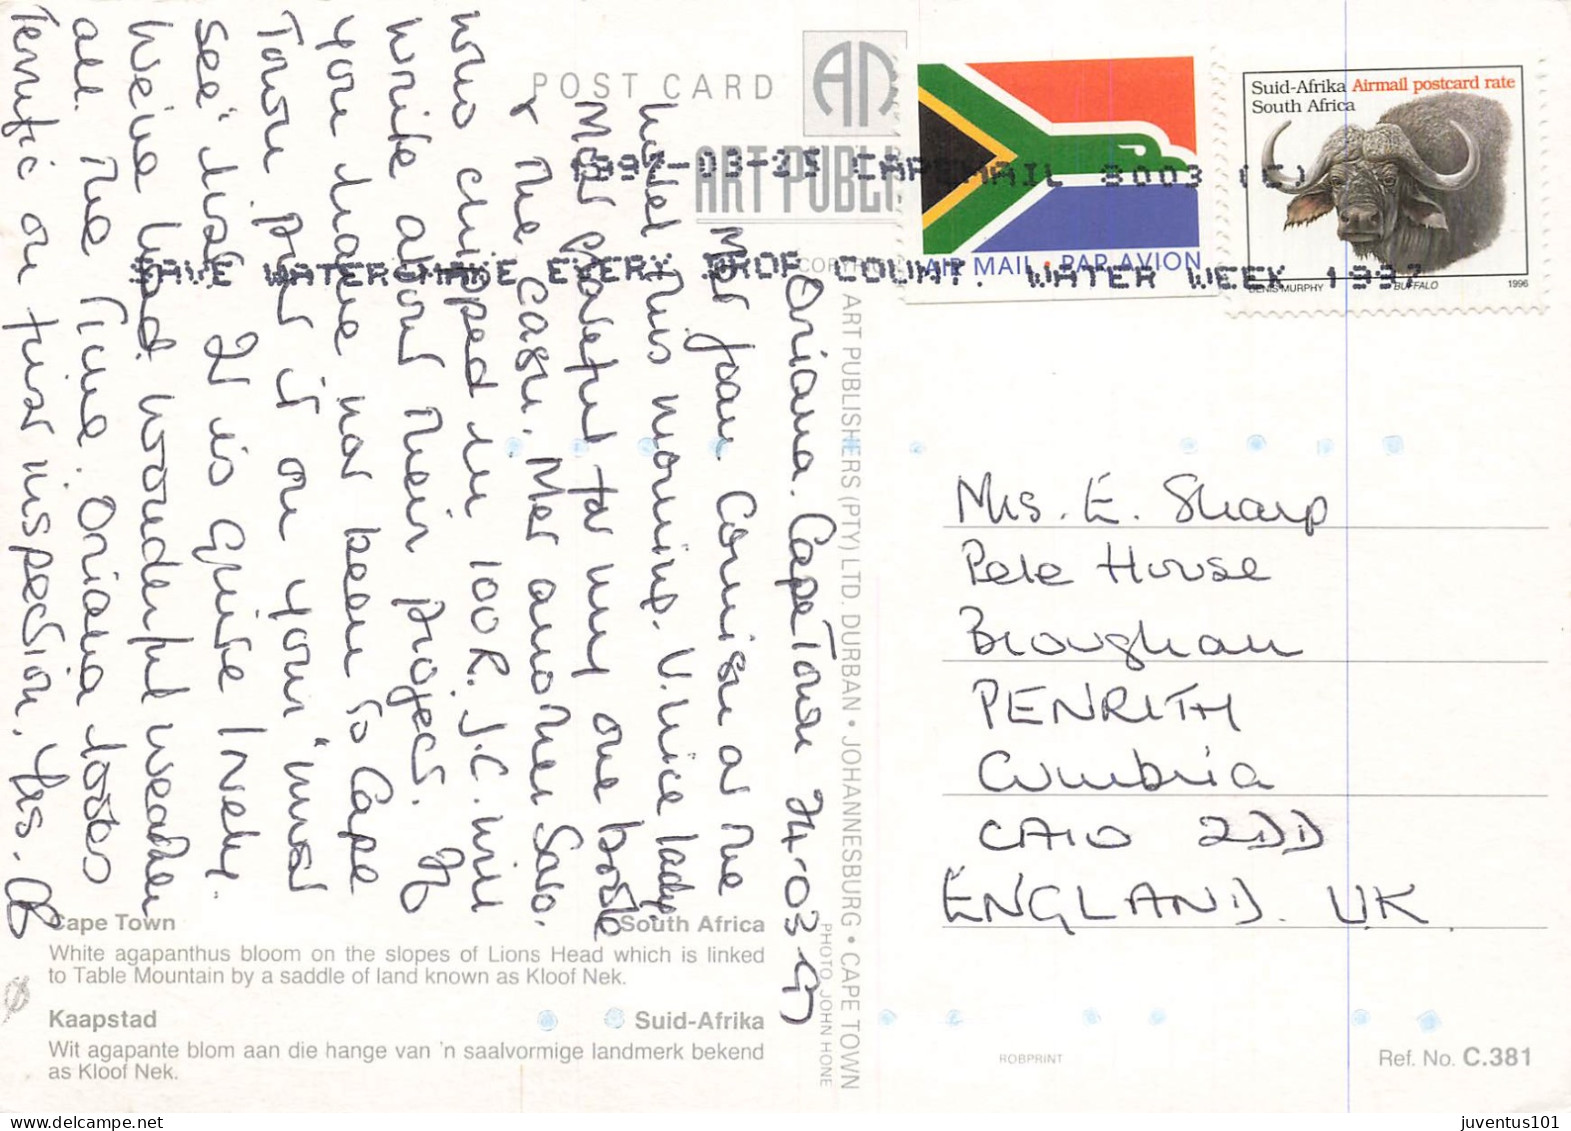 POST CARD
ART PUBLI
1997-03-25 CAPEMAIL 8003 (C)
SAVE WATER-MAKE EVERY DROP COUNT. WATER WEEK 1997
AIR MAIL • PAR AVION
Suid-Afrika Airmail postcard rate
South Africa
DENIS MURPHY
BUFFALO
1996
Oriana. Cape Town 24.03.97
Met Joan Cornish at the
hotel this morning. V. nice lady
Most grateful for my one bottle
& the cash. Met another Saro.
who chipped in 100R. J.C. will
write about their project. If
you have not been to Cape
Town put it on your "must
see" list. It is quite lovely.
We've had wonderful weather
all the time. Oriana looks
terrific on first inspection. Yrs.
COPYRIGHT
ART PUBLISHERS (PTY) LTD. DURBAN • JOHANNESBURG • CAPE TOWN
PHOTO JOHN HONE
Mrs. E. Sharp
Pele House
Brougham
PENRITH
Cumbria
CA10 2DD
ENGLAND. UK.
Cape Town South Africa
White agapanthus bloom on the slopes of Lions Head which is linked
to Table Mountain by a saddle of land known as Kloof Nek.
Kaapstad Suid-Afrika
Wit agapante blom aan die hange van 'n saalvormige landmerk bekend
as Kloof Nek.
ROBPRINT
Ref. No. C.381
juventus101